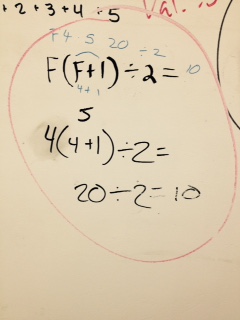 + 2 + 3 + 4 ÷ 5
F 4 · 5 20 ÷ 2
F(F+1) ÷ 2 = 10
4+1
5
4(4+1) ÷ 2 =
20 ÷ 2 = 10